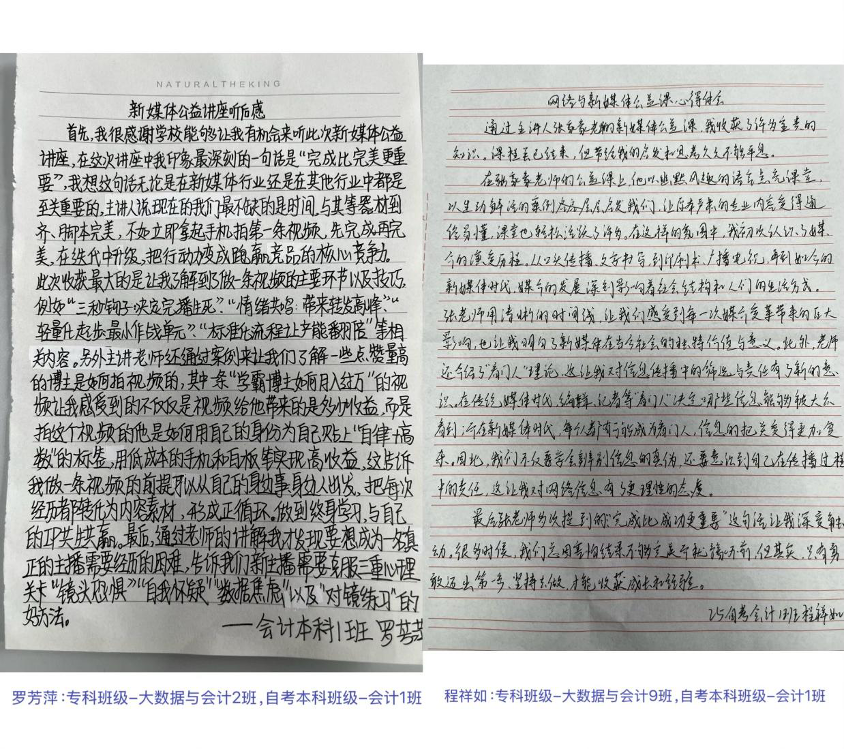 NATURALTHEKING
新媒体公益讲座听后感
首先,我很感谢学校能够让我有机会来听此次新媒体公益
讲座,在这次讲座中我印象最深刻的一句话是“完成比完美更重
要”,我想这句话无论是在新媒体行业还是在其他行业中都是
至关重要的,主讲人说现在的我们最不缺的是时间,与其等器材到
齐、脚本完美,不如立即拿起手机拍第一条视频,先完成再完
美,在迭代中升级,把行动力变成跑赢竞品的核心竞争力。
此次收获最大的是让我了解到了做一条视频的主要环节以及技巧,
例如“三秒钩子决定完播生死”、“情绪共鸣:带来转发高峰”、“
轻量化起步最小作战单元”、“标准化流程让产能翻倍”等相
关内容。另外主讲老师还通过案例来让我们了解一些点赞量高
的博主是如何拍视频的,其中一条“学霸博主如何月入过万”的视
频让我感受到的不仅仅是视频给他带来的是多少收益,而是
拍这个视频的他是如何用自己的身份为自己贴上“自律+高
数”的标签,用低成本的手机和白板等实现高收益,这告诉
我做一条视频的前提可以从自己的身边事身边人出发,把每次
经历都转化为内容素材,形成正循环。做到终身学习,与自己
的IP共生共赢。最后,通过老师的讲解我才发现要想成为一名真
正的主播需要经历的困难,告诉我们新主播需要克服三重心理
关卡“镜头恐惧”“自我怀疑”“数据焦虑”以及“对镜练习”的
好方法。
——会计本科1班 罗芳萍
网络与新媒体公益课心得体会
通过主讲人张家豪老师的新媒体公益课,我收获了许多宝贵的
知识。课程虽已结束,但带给我的启发和思考久久不能平息。
在张家豪老师的公益课上,他以幽默风趣的语言点亮课堂,
以生动鲜活的案例层层启发我们,让原本厚重的专业内容变得通
俗易懂,课堂也轻松活跃了许多。在这样的氛围中,我初次认识了媒
介的演变历程。从口头传播、文字书写,到印刷术、广播电视,再到如今的
新媒体时代,媒介的发展深刻影响着社会结构和人们的生活方式。
张老师用清晰的时间线,让我们感受到每一次媒介变革带来的巨大
影响,也让我明白了新媒体在当今社会的独特价值与意义。此外,老师
还介绍了“看门人”理论,这让我对信息传播中的筛选与责任有了新的意
识。在传统媒体时代,编辑、记者等“看门人”决定了哪些信息能够被大众
看到;而在新媒体时代,每个人都有可能成为看门人,信息的把关变得更加复
杂。因此,我们不仅要学会辨别信息的真伪,还要意识到自己在传播过程
中的责任,这让我对网络信息有了更理性的态度。
最后张老师多次提到的“完成比成功更重要”这句话让我深受触
动。很多时候,我们总因害怕结果不够完美而犹豫不前,但其实,只有勇
敢迈出第一步,坚持去做,才能收获成长和经验。
25自考会计1班程祥如
罗芳萍:专科班级-大数据与会计2班,自考本科班级-会计1班
程祥如:专科班级-大数据与会计9班,自考本科班级-会计1班